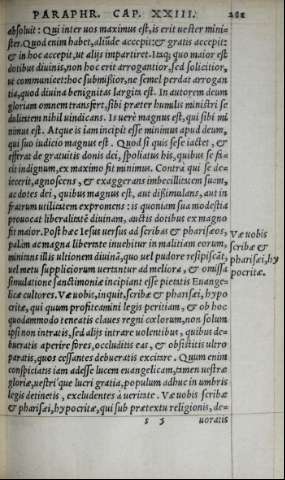 PARAPHR. CAP. XXIII.
absoluit: Qui inter uos maximus est, is erit uester mini-
ster. Quod enim habet, aliũde accepit: & gratis accepit:
& in hoc accepit, ut alijs impartiret. Itaq; quo maior est
dotibus diuinis, non hoc erit arrogantior, sed solicitior,
ut communicet: hoc submissior, ne semel perdat arrogan
tia, quod diuina benignitas largita est. In autorem deum
gloriam omnem transfert, sibi præter humilis ministri se
dulitatem nihil uindicans. Is uerè magnus est, qui sibi mi
nimus est. Atque is iam incipit esse minimus apud deum,
qui suo iudicio magnus est. Quod si quis sese iactet, &
efferat de gratuitis donis dei, spoliatus his, quibus se fe-
cit indignum, ex maximo fit minimus. Contra qui se de-
iecerit, agnoscens, & exaggerans imbecillitatem suam,
ac dotes dei, quibus magnus est, aut dissimulans, aut in
fratrum utilitatem expromens: is quoniam sua modestia
prouocat liberalitatẽ diuinam, auctis dotibus ex magno
fit maior. Post hæc Iesus uersus ad scribas & pharisæos,
palàm ac magna libertate inuehitur in malitiam eorum,
minitans illis ultionem diuinã, quo uel pudore resipiscãt,
uel metu suppliciorum uertantur ad meliora, & omissa
simulatione sanctimoniæ incipiant esse pietatis Euange-
licæ cultores. Væ uobis, inquit, scribæ & pharisæi, hypo
critæ, qui quum profiteamini legis peritiam, & ob hoc
quodammodo teneatis claues regni cœlorum, non solum
ipsi non intratis, sed alijs intrare uolentibus, quibus de-
bueratis aperire fores, occluditis eas, & obsistitis ultro
paratis, quos cessantes debueratis excitare. Quum enim
conspiciatis iam adesse lucem euangelicam, tamen uestræ
gloriæ, uestri'que lucri gratia, populum adhuc in umbris
legis detinetis, excludentes à ueritate. Væ uobis scribæ
& pharisæi, hypocritæ, qui sub prætextu religionis, de-
uoratis
Væ uobis
scribæ &
pharisæi, hy
pocritæ.